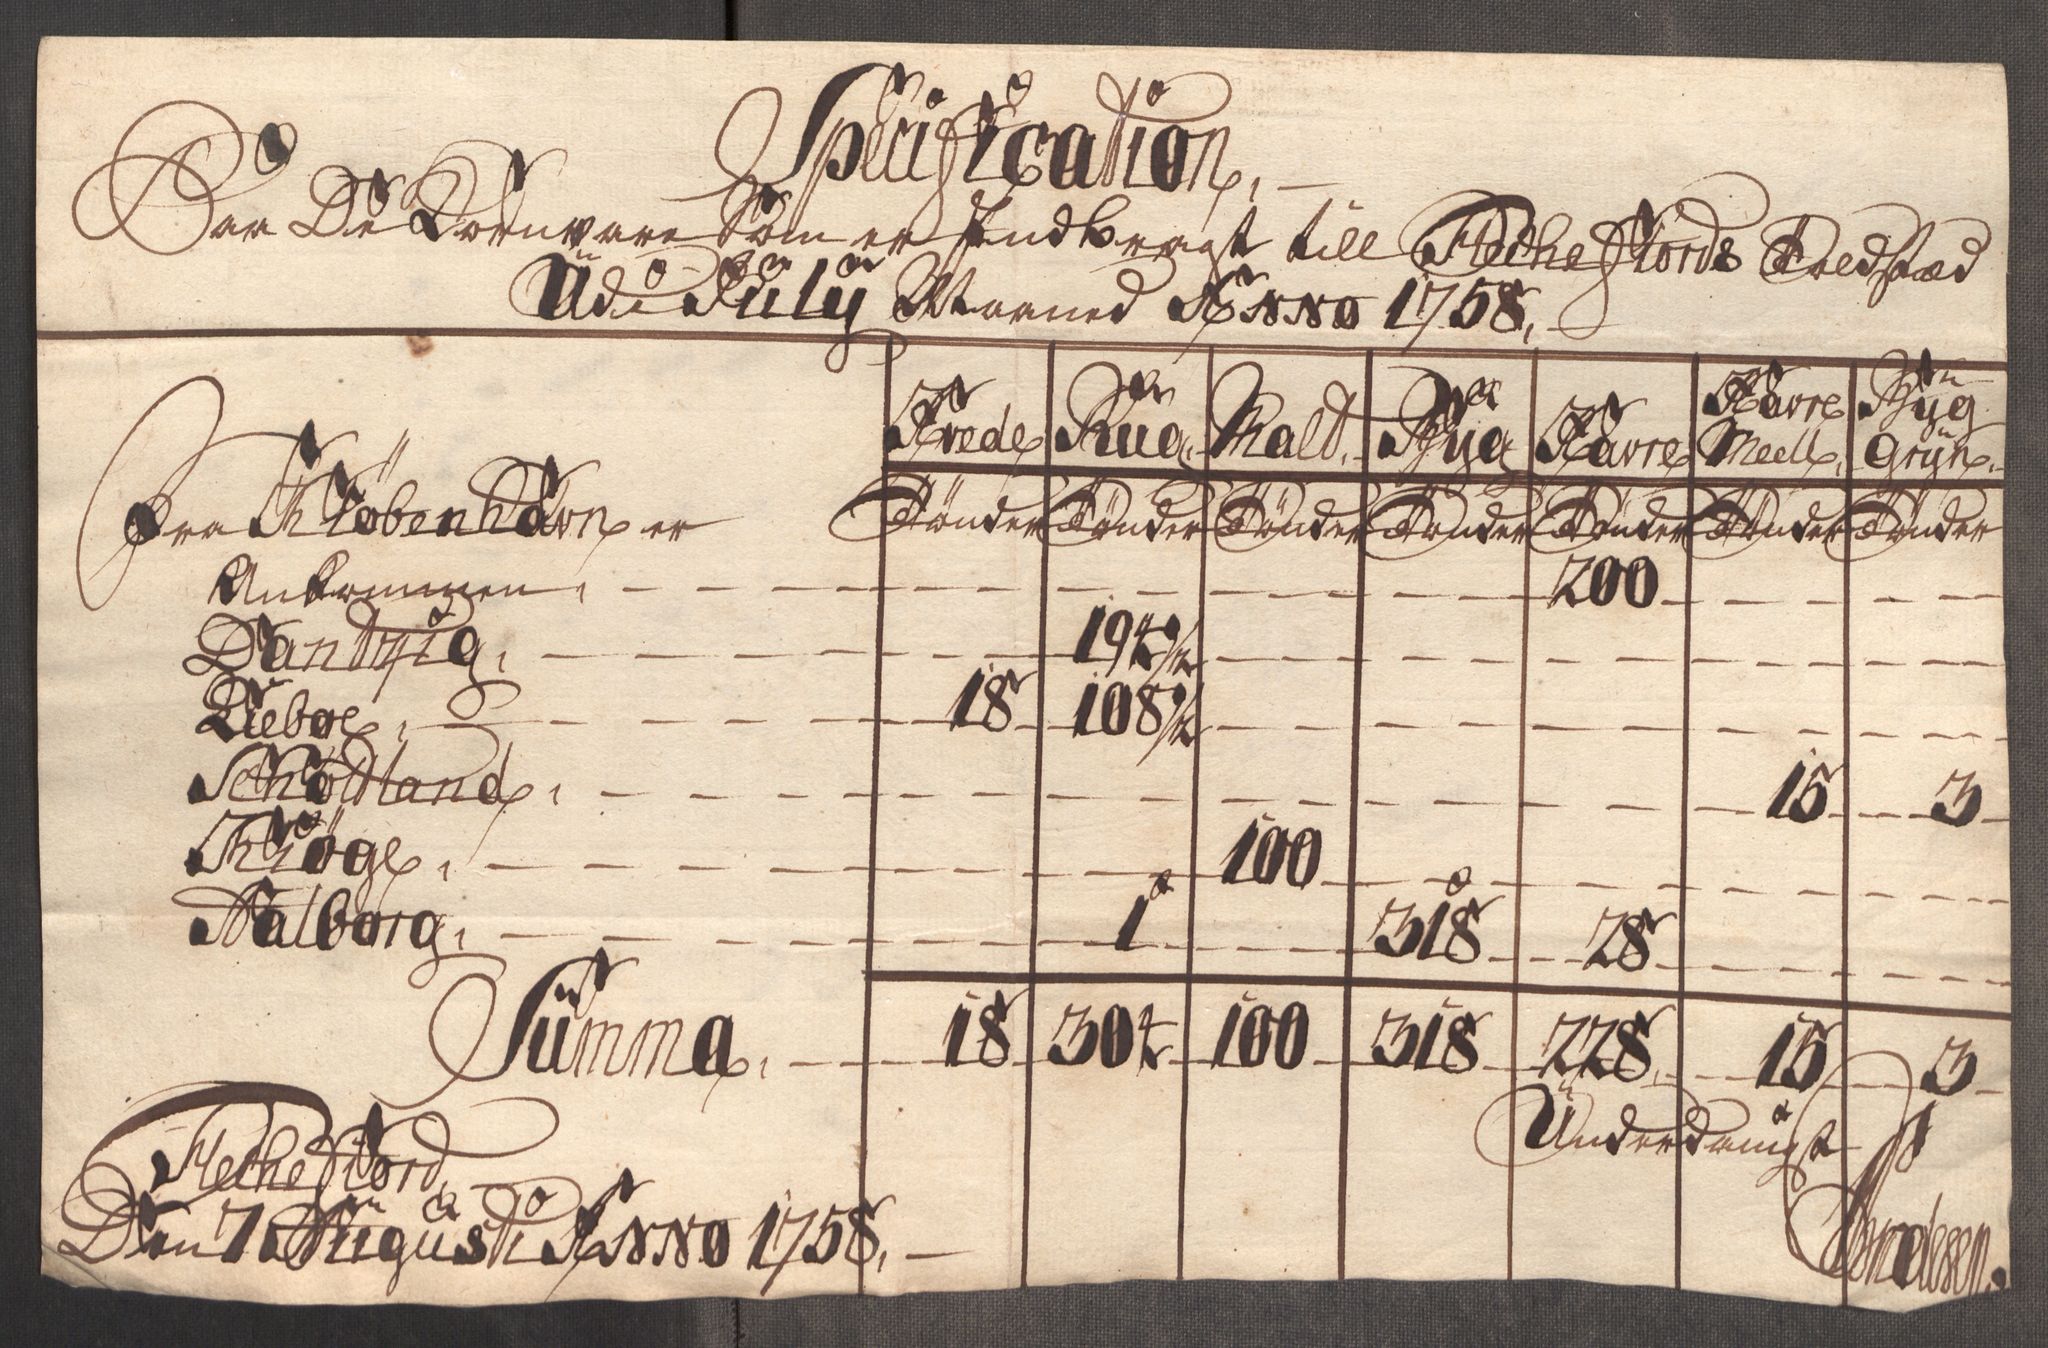 Specification
Paa De Kornvare Som er Indbragt till Flechefiords Tredstæd
Udi July Maaned Anno 1758.
Hvede Rüg Malt Byg Havre Havre Meell Byg Grÿn
Fra Kiøbenhavn er Tönder Tönder Tönder Tönder Tönder Tönder Tönder
Ankommen 200
Dantzig 194 1/2
Liebve 18 108 1/2
Schodtland 15 3
Kiøge 100
Aalborg 1 318 28
Summa 18 304 100 318 228 15 3
Underdanigst
Flechefiord
Den 7 Augusti Anno 1758.